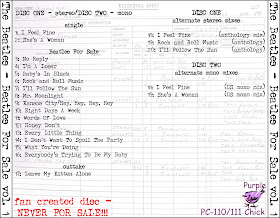 DISC ONE - stereo/DISC TWO - mono
single
I Feel Fine
She's A Woman
Beatles For Sale
No Reply
I'm A Loser
Baby's In Black
Rock and Roll Music
I'll Follow The Sun
Mr. Moonlight
Kansas City/Hey, Hey, Hey, Hey
Eight Days A Week
Words Of Love
Honey Don't
Every Little Thing
I Don't Want To Spoil The Party
What You're Doing
Everybody's Trying To Be My Baby
outtake
Leave My Kitten Alone
DISC ONE
alternate stereo mixes
I Feel Fine (anthology mix)
Rock and Roll Music (anthology mix)
I'll Follow The Sun
DISC TWO
alternate mono mixes
I Feel Fine (US mono mix)
She's A Woman (US mono mix)
fan created disc -
NEVER FOR SALE!!!
Purple
Chick
PC-110/111
The Beatles - Beatles For Sale vol. 1
The Beatles - Beatles For Sale vol. 1